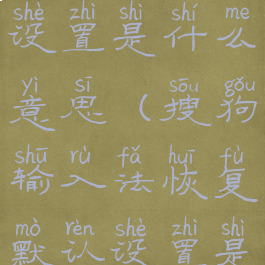 shè zhì shì shí me
设置是什么
yì sī ( sōu gǒu
意思(搜狗
shū rù fǎ huī fù
输入法恢复
mò rèn shè zhì shì
默认设置是